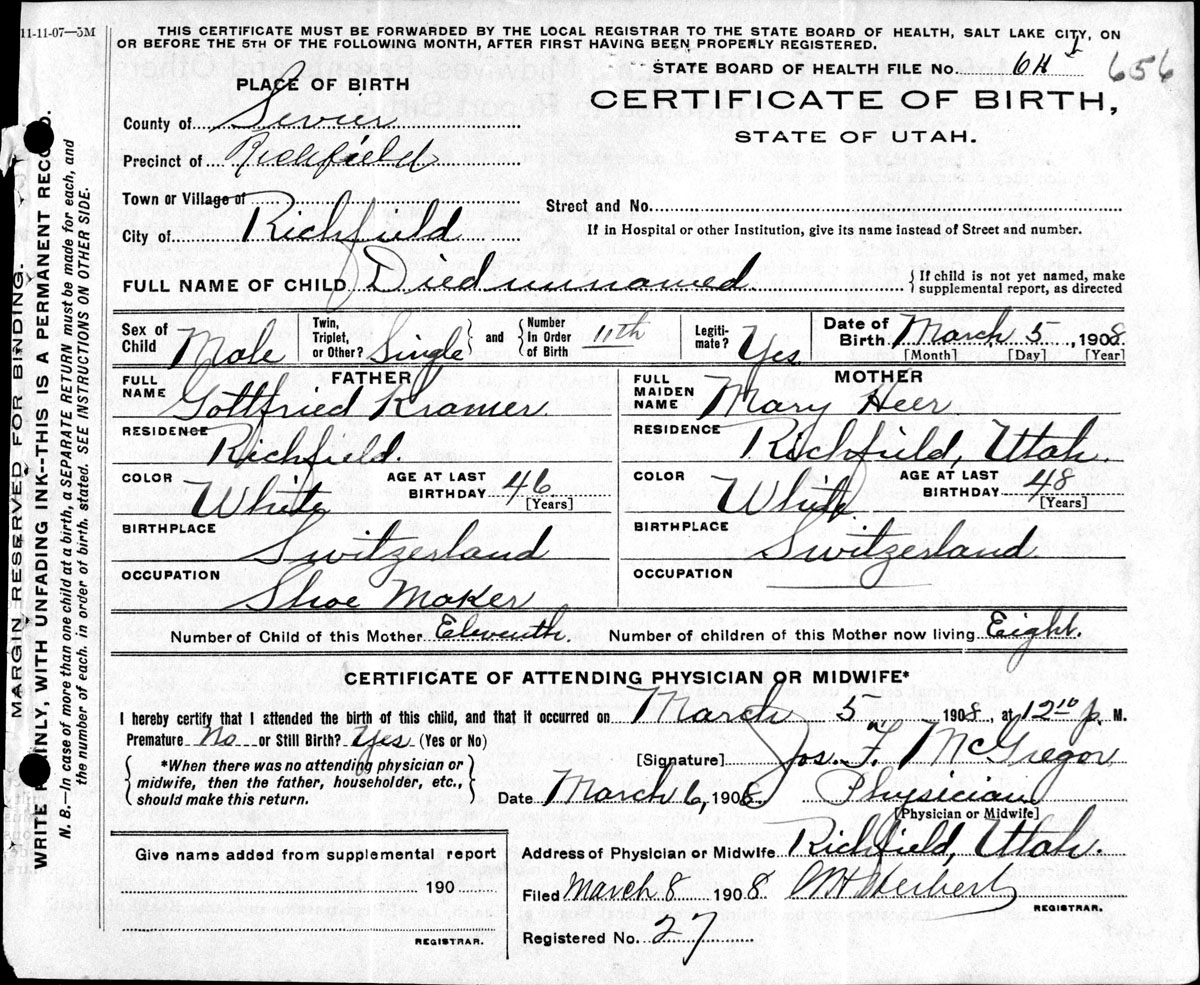 11-11-07—5M
THIS CERTIFICATE MUST BE FORWARDED BY THE LOCAL REGISTRAR TO THE STATE BOARD OF HEALTH, SALT LAKE CITY, ON
OR BEFORE THE 5TH OF THE FOLLOWING MONTH, AFTER FIRST HAVING BEEN PROPERLY REGISTERED.
STATE BOARD OF HEALTH FILE No. 656
PLACE OF BIRTH
CERTIFICATE OF BIRTH,
STATE OF UTAH.
County of Sevier
Precinct of Richfield
Town or Village of
Street and No.
City of Richfield
If in Hospital or other Institution, give its name instead of Street and number.
FULL NAME OF CHILD Died unnamed
{ If child is not yet named, make
supplemental report, as directed
Sex of Child Male
Twin, Triplet, or Other? Single } and { Number In Order of Birth 11th
Legiti-mate? Yes
Date of Birth March 5, 1908
[Month] [Day] [Year]
FATHER
FULL NAME Gottfried Kramer
RESIDENCE Richfield.
COLOR White AGE AT LAST BIRTHDAY 46 [Years]
BIRTHPLACE Switzerland
OCCUPATION Shoe Maker
MOTHER
FULL MAIDEN NAME Mary Heer
RESIDENCE Richfield, Utah.
COLOR White AGE AT LAST BIRTHDAY 48 [Years]
BIRTHPLACE Switzerland
OCCUPATION
Number of Child of this Mother Eleventh. Number of children of this Mother now living Eight.
CERTIFICATE OF ATTENDING PHYSICIAN OR MIDWIFE*
I hereby certify that I attended the birth of this child, and that it occurred on March 5 1908, at 12 10 p. M.
Premature No or Still Birth? Yes (Yes or No)
{ *When there was no attending physician or
midwife, then the father, householder, etc.,
should make this return. }
[Signature] Jos. F. McGregor
Date March 6, 1908 Physician
[Physician or Midwife]
Give name added from supplemental report
190
REGISTRAR.
Address of Physician or Midwife Richfield, Utah.
Filed March 8 1908 Herbert
REGISTRAR.
Registered No. 27
MARGIN RESERVED FOR BINDING.
WRITE PLAINLY, WITH UNFADING INK--THIS IS A PERMANENT RECORD.
N. B.—In case of more than one child at a birth, a SEPARATE RETURN must be made for each, and
the number of each, in order of birth, stated. SEE INSTRUCTIONS ON OTHER SIDE.